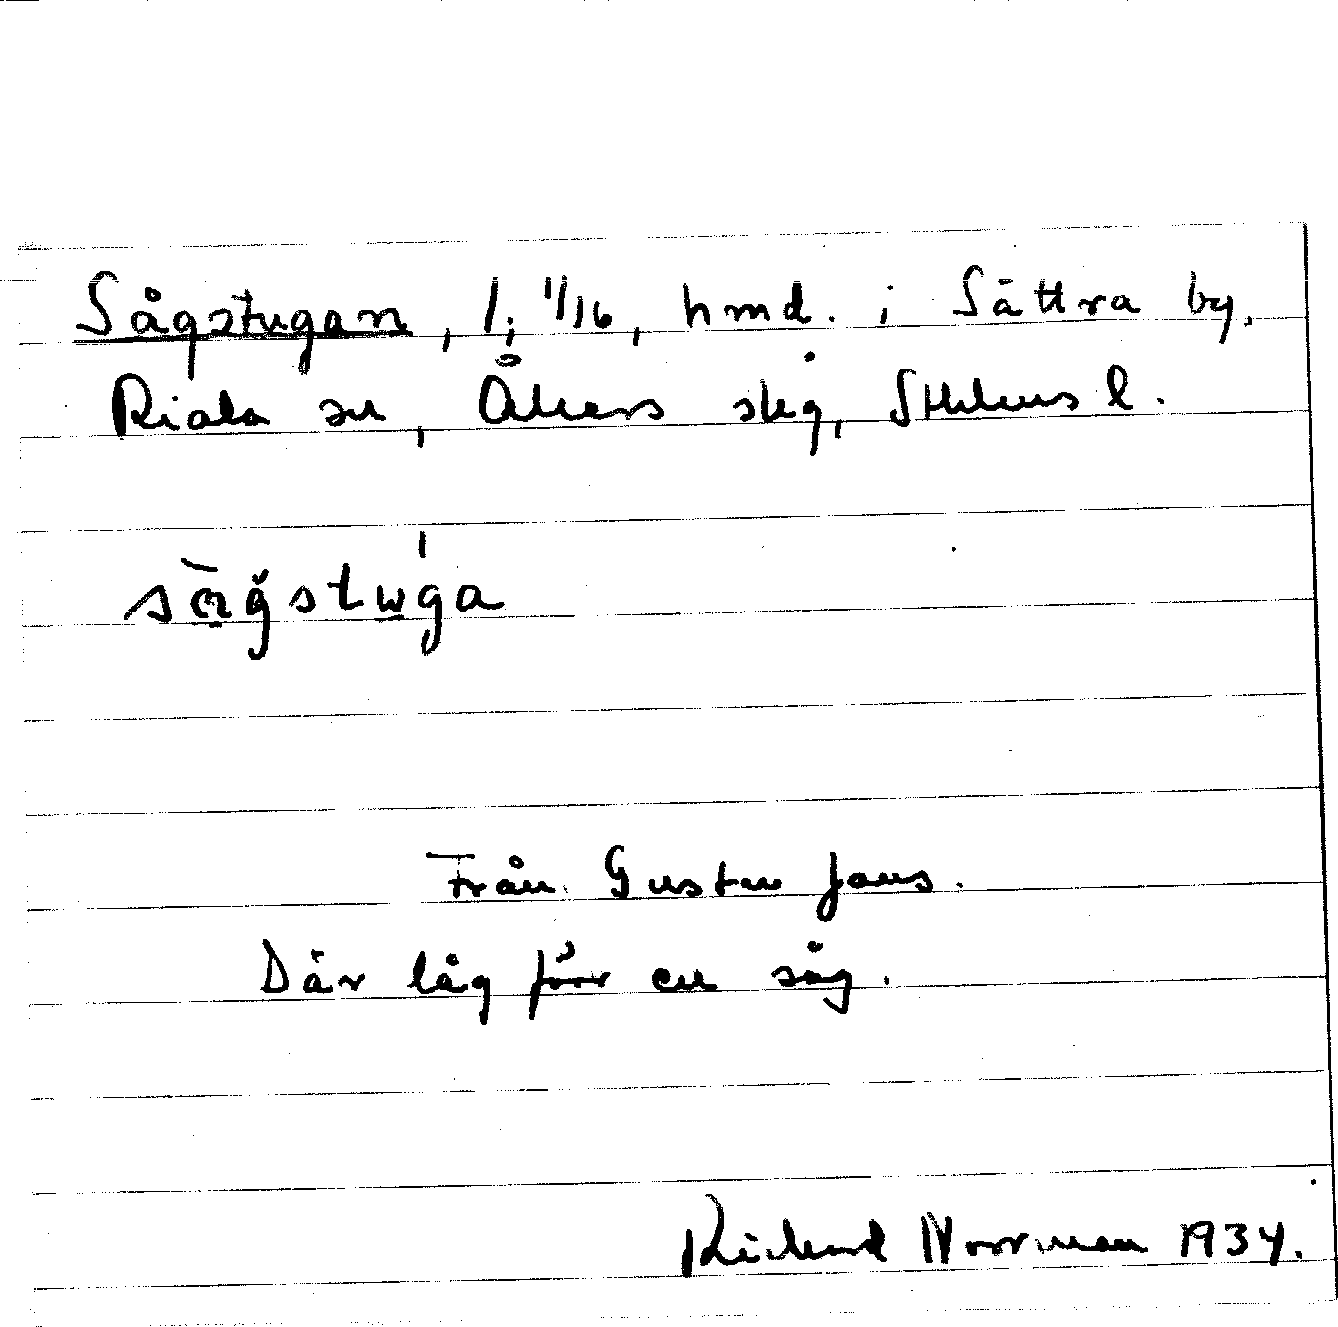 Sågstugan, l; 1/16, hmd. i Sättra by,
Riala sn, Åkers skg, Sthlms l.
sàgstu̲ga
Från Gustav Jans.
Där låg förr en såg.
Richard Norrman 1934.